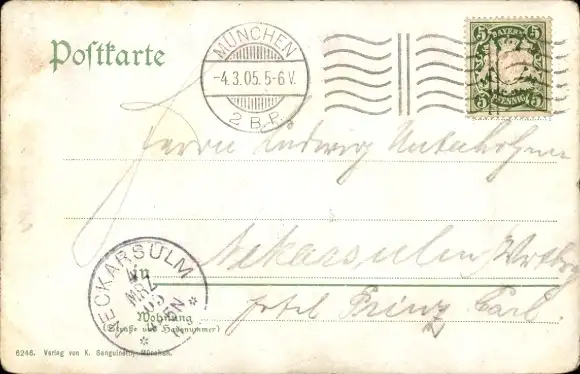 Postkarte
MÜNCHEN
-4.3.05.5-6 V.
2 B.P.
5 BAYERN 5
5 PFENNIG 5
Herrn Ludwig
Nekarsulm
NECKARSULM
MRZ
05
in
Hotel Prinz Carl.
Wohnung
(Straße und Hausnummer)
6246. Verlag von K. Sanguinetti, München.